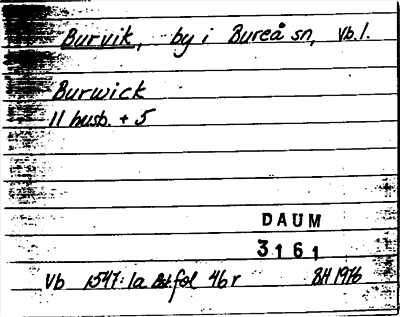 Burvik, by i Bureå sn, Vb. l.
Burwick
11 husb. + 5
DAUM
3161
Vb 1547:1a fol 46r BH 1976